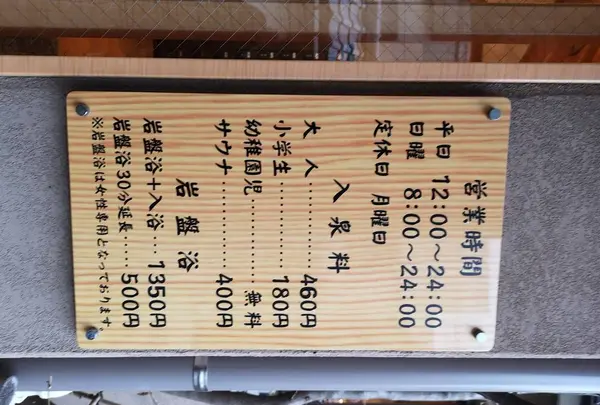 営業時間
平日 12:00～24:00
日曜 8:00～24:00
定休日 月曜日
入泉料
大人………………460円
小学生……………180円
幼稚園児…………無料
サウナ……………400円
岩盤浴
岩盤浴+入浴……1350円
岩盤浴30分延長……500円
※岩盤浴は女性専用となっております。